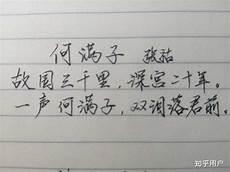 何满子 张祜
故国三千里，深宫二十年。
一声何满子，双泪落君前。
知乎用户